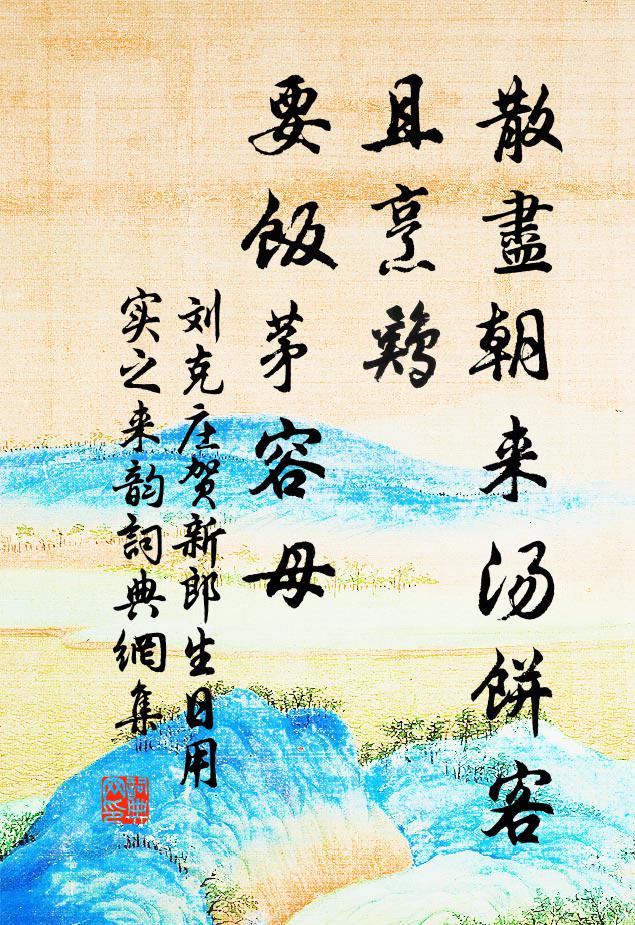 散盡朝来汤餅客
且烹鷄
要飯茅容母
刘克庄贺新郎生日用
实之来韵詞典網集